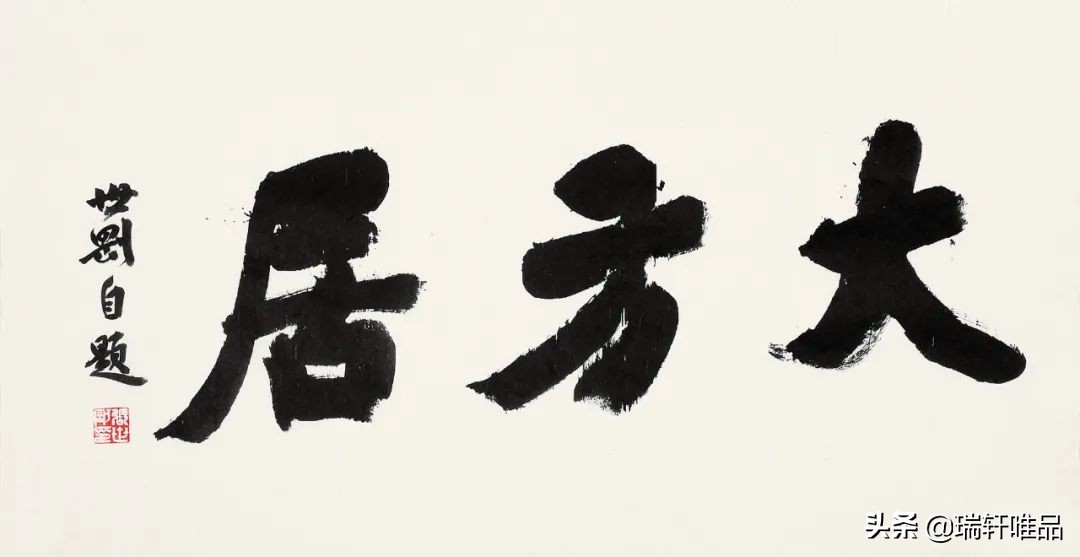 大方居
世剛自題
头条 @瑞轩唯品